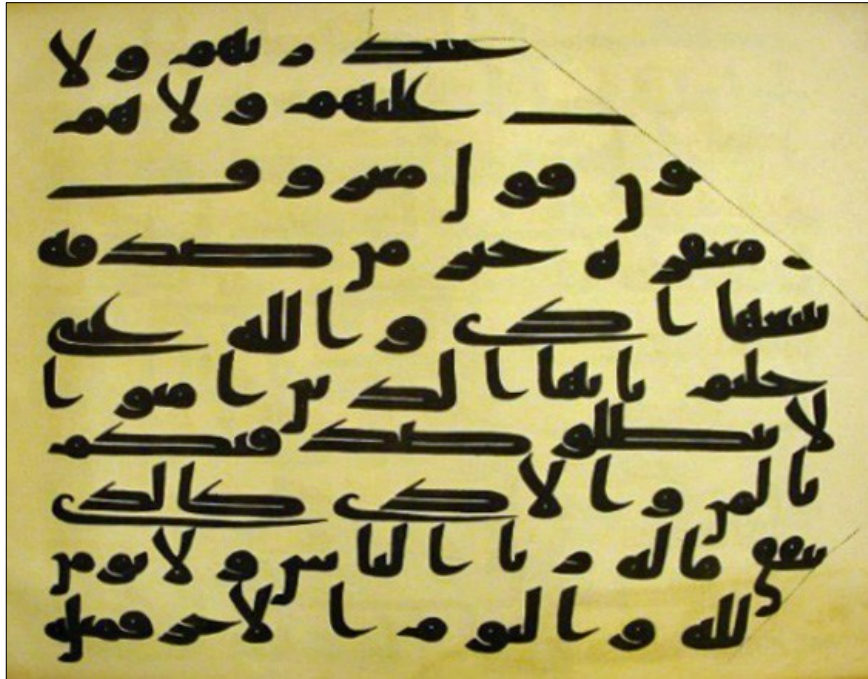 عند ربهم ولا
عليهم ولا هم
ن قول معروف
و مغفرة خير من صدقة
يتبعها اذى والله غنى
حليم يايها الذين امنوا
لا تبطلوا صدقتكم
بالمن والاذى كالذى
ينفق ماله ربا الناس ولا يومن
لله واليوم الاخر فمثله